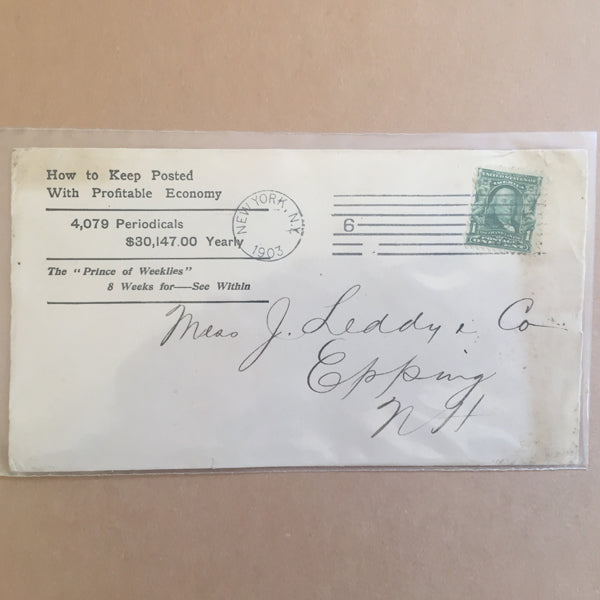 How to Keep Posted
With Profitable Economy
4,079 Periodicals
$30,147.00 Yearly
The "Prince of Weeklies"
8 Weeks for——See Within
NEW YORK, N.Y.
1903
6
UNITED STATES
1
Mess J. Leddy & Co
Epping
NH